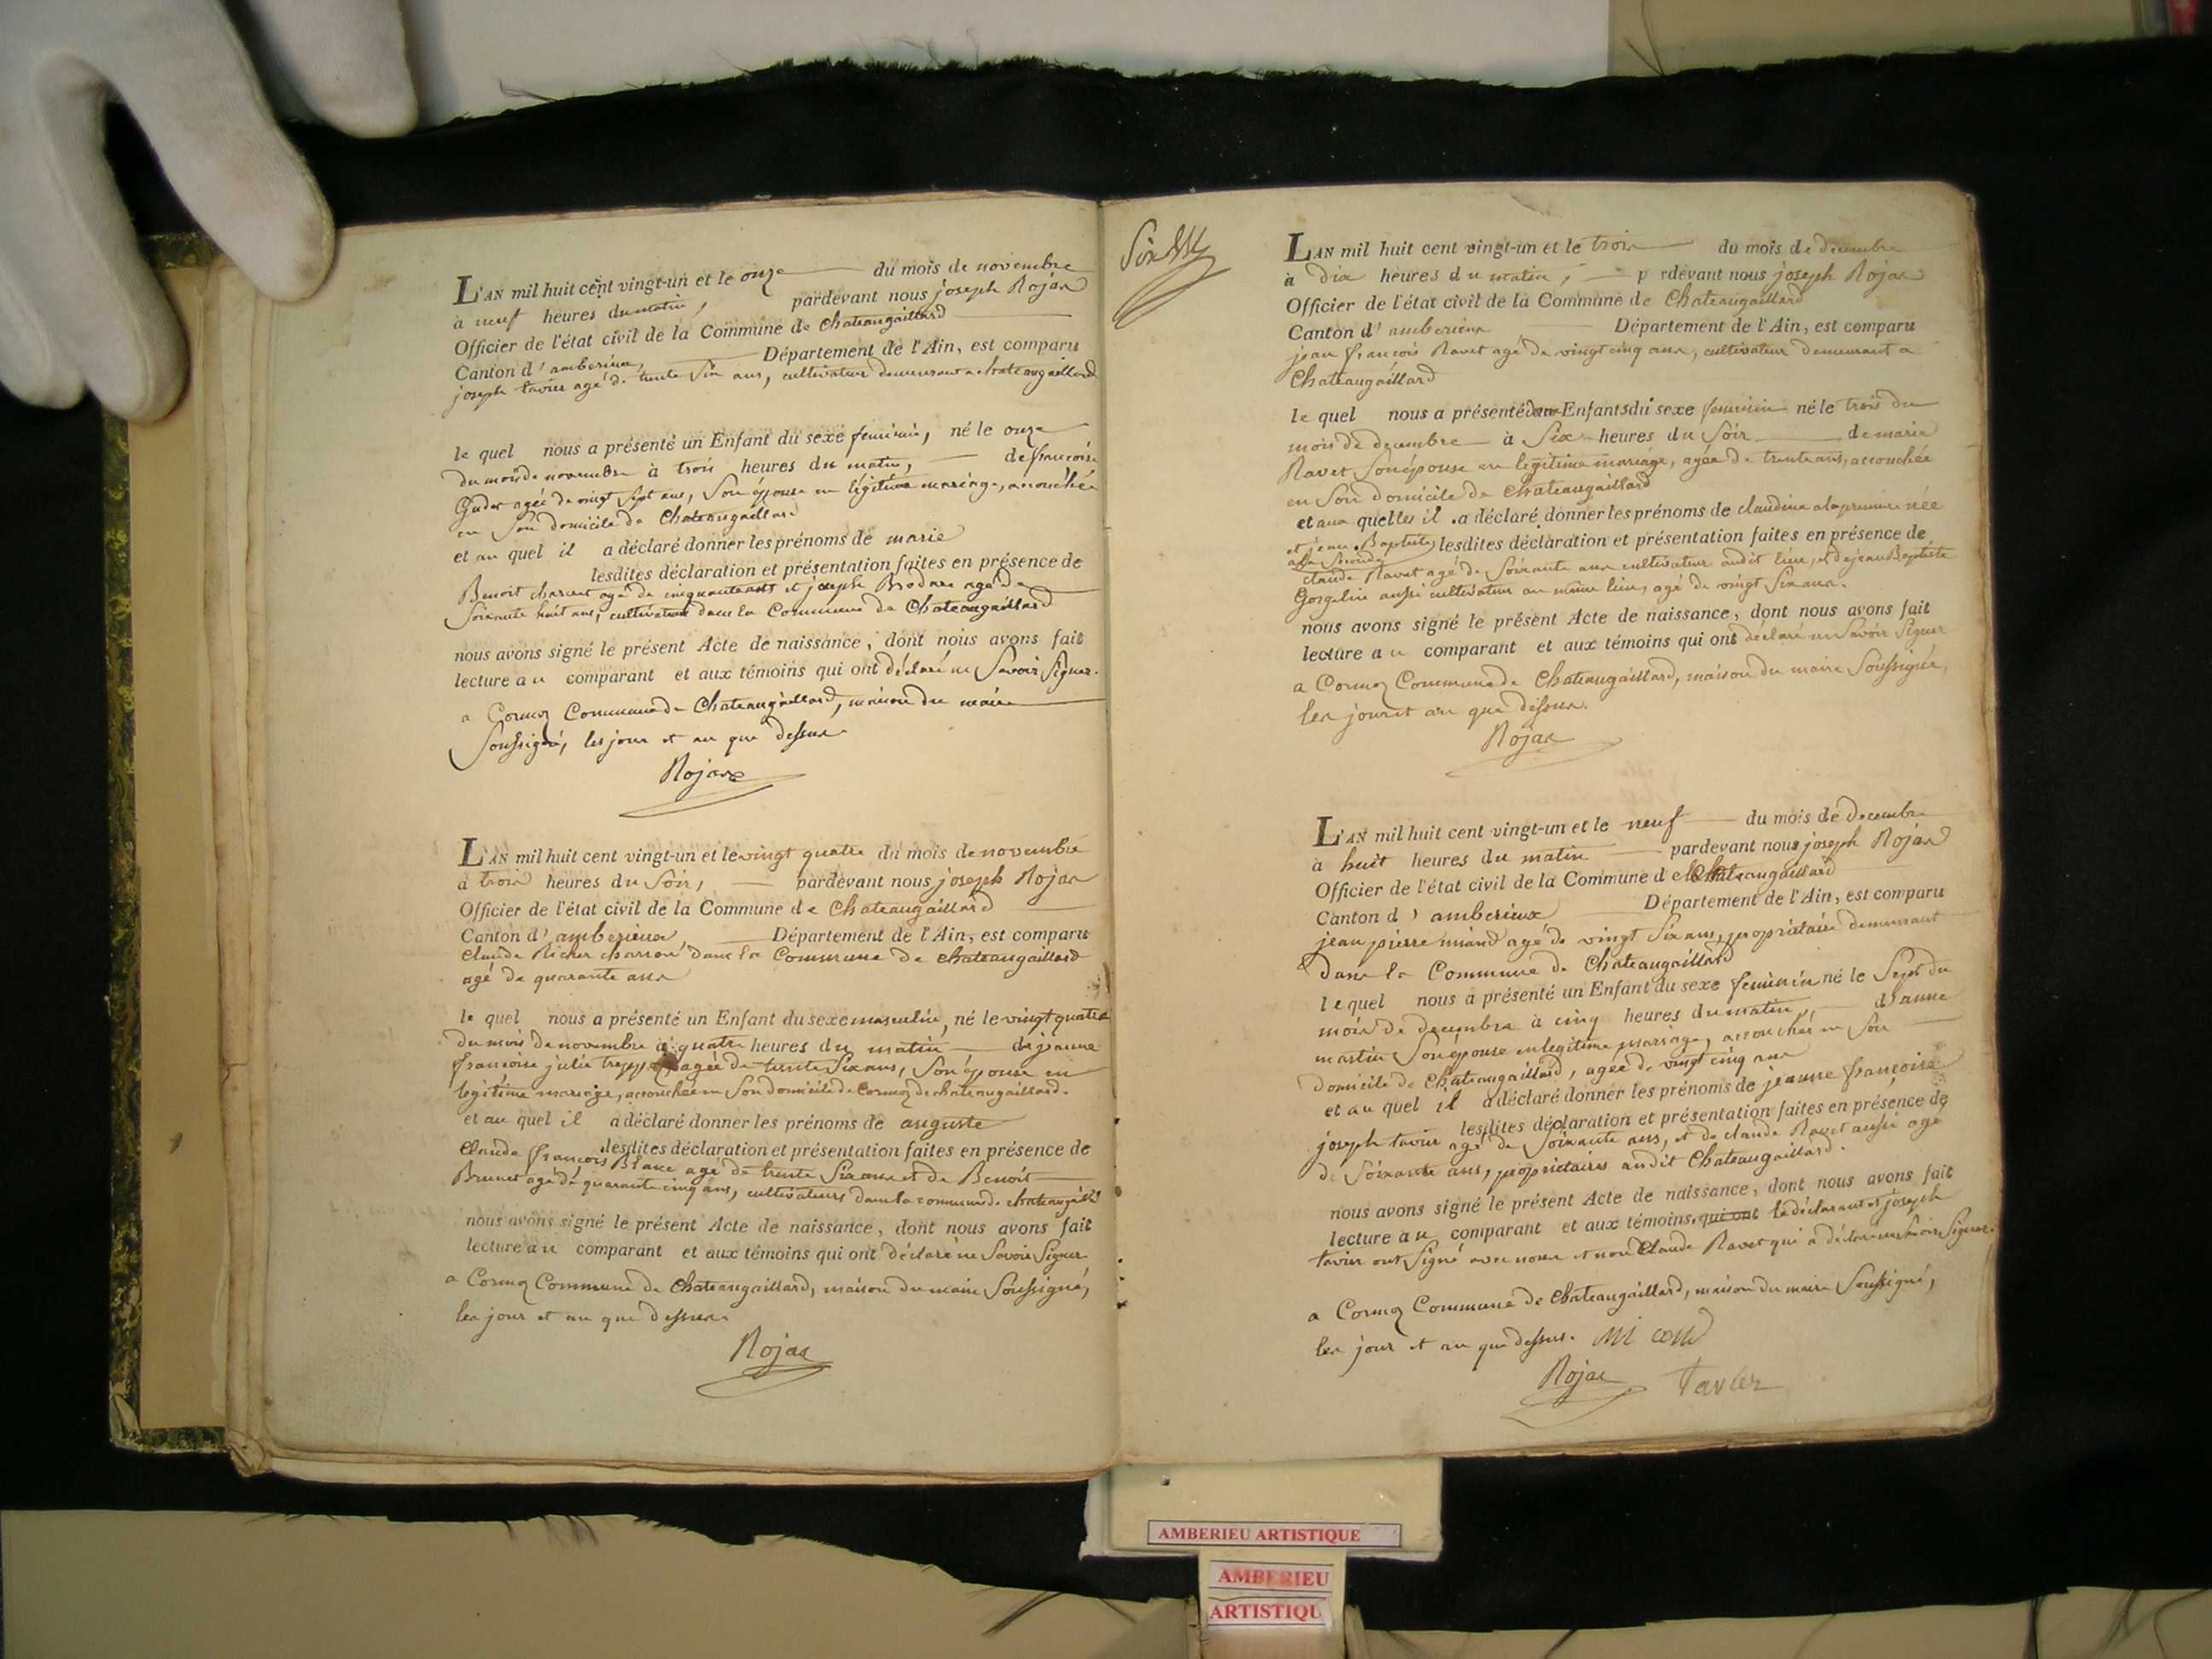 L'AN mil huit cent vingt-un et le onze du mois de novembre
à neuf heures du matin, pardevant nous joseph Rojas
Officier de l'état civil de la Commune de Chateaugaillard
Canton d'amberieux, Département de l'Ain, est comparu
joseph tavier agé de trente six ans, cultivateur demeurant a chateaugaillard
le quel nous a présenté un Enfant du sexe feminin, né le onze
du mois de novembre à trois heures du matin, de françoise
agée de vingt sept ans, son épouse en légitime mariage, accouchée
en son domicile de Chateaugaillard
et au quel il a déclaré donner les prénoms de marie
lesdites déclaration et présentation faites en présence de
Benoit agé de cinquante ans et joseph Brodare agé de
soixante huit ans, cultivateurs dans la Commune de Chateaugaillard
nous avons signé le présent Acte de naissance, dont nous avons fait
lecture au comparant et aux témoins qui ont déclaré ne savoir signer.
a Cormoz Commune de Chateaugaillard, maison du maire
soussigné, les jour et an que dessus
Rojas
L'AN mil huit cent vingt-un et le vingt quatre du mois de novembre
à trois heures du soir, pardevant nous joseph Rojas
Officier de l'état civil de la Commune de Chateaugaillard
Canton d'amberieux Département de l'Ain, est comparu
Claude Richer charron dans la Commune de chateaugaillard
agé de quarante ans
le quel nous a présenté un Enfant du sexe masculin, né le vingt quatre
du mois de novembre à quatre heures du matin de jeanne
françoise julie agée de trente six ans, son épouse en
legitime mariage, accouchée en son domicile de Cormoz de chateaugaillard.
et au quel il a déclaré donner les prénoms de auguste
lesdites déclaration et présentation faites en présence de
Claude françois Blanc agé de trente six ans et de Benoit
Brunet agé de quarante cinq ans, cultivateurs dans la commune de chateaugaillard
nous avons signé le présent Acte de naissance, dont nous avons fait
lecture au comparant et aux témoins qui ont déclaré ne savoir signer
a Cormoz Commune de Chateaugaillard, maison du maire soussigné,
les jour et an que dessus.
Rojas
Six
L'AN mil huit cent vingt-un et le trois du mois de decembre
à dix heures du matin, p rdevant nous joseph Rojas
Officier de l'état civil de la Commune de Chateaugaillard
Canton d'amberieux Département de l'Ain, est comparu
jean françois Ravet agé de vingt cinq ans, cultivateur demeurant a
Chateaugaillard
le quel nous a présenté deux Enfants du sexe feminin né le trois du
mois de decembre à six heures du soir de marie
Ravet son épouse en legitime mariage, agée de trente ans, accouchée
en son domicile de Chateaugaillard
et aux quelles il a déclaré donner les prénoms de claudine a la premiere née
et jean Baptiste lesdites déclaration et présentation faites en présence de
a la seconde
claude Ravet agé de soixante ans cultivateur audit lieu, et de jean Baptiste
Gorgelin aussi cultivateur au même lieu, agé de vingt six ans.
nous avons signé le présent Acte de naissance, dont nous avons fait
lecture au comparant et aux témoins qui ont déclaré ne savoir signer
a Cormoz Commune de Chateaugaillard, maison du maire soussigné,
les jour et an que dessus.
Rojas
L'AN mil huit cent vingt-un et le neuf du mois de decembre
à huit heures du matin pardevant nous joseph Rojas
Officier de l'état civil de la Commune de Chateaugaillard
Canton d'amberieux Département de l'Ain, est comparu
jean pierre agé de vingt six ans, propriétaire demeurant
dans la Commune de Chateaugaillard
le quel nous a présenté un Enfant du sexe feminin né le sept du
mois de decembre à cinq heures du matin, d'anne
martin son épouse en legitime mariage, accouchée en son
domicile de Chateaugaillard, agée de vingt cinq ans
et au quel il a déclaré donner les prénoms de jeanne françoise
lesdites déclaration et présentation faites en présence de
joseph tavier agé de soixante ans, et de claude Ravet aussi agé
de soixante ans, propriétaires audit Chateaugaillard.
nous avons signé le présent Acte de naissance, dont nous avons fait
lecture au comparant et aux témoins, qui ont le déclarant et joseph
tavier ont signé avec nous et non Claude Ravet qui a déclaré ne savoir signer.
a Cormoz Commune de Chateaugaillard, maison du maire soussigné,
les jour et an que dessus.
Rojas Tavier
AMBERIEU ARTISTIQUE
AMBERIEU
ARTISTIQU